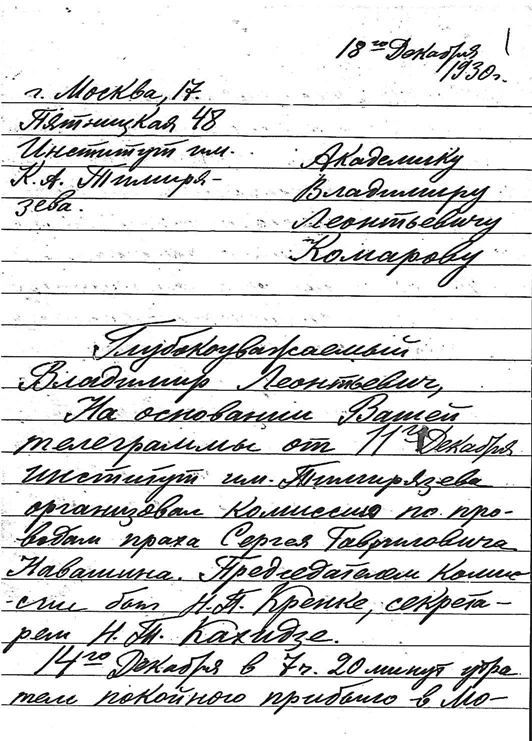 18го Декабря
1930г.
г. Москва, 17.
Пятницкая 48
Институт им.
К. А. Тимиря-
зева.
Академику
Владимиру
Леонтьевичу
Комарову
Глубокоуважаемый
Владимир Леонтьевич,
На основании Вашей
телеграммы от 11го Декабря
институт им. Тимирязева
организовал комиссию по про-
водам праха Сергея Гавриловича
Навашина. Председателем Комис-
-сии был Н. П. Кренке, секрета-
рем Н. Т. Кахидзе.
14го Декабря в 7ч. 20 минут утра
тело покойного прибыло в Мо-